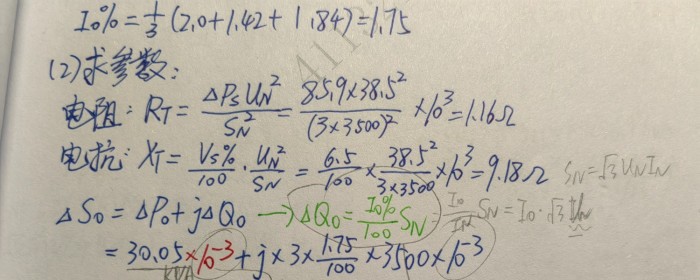 I₀% = 1/3 (2.0+1.42+1.84) = 1.75
(2)求参数:
电阻: R_T = ΔP_S U_N² / S_N² = 85.9×38.5² / (3×3500)² ×10³ = 1.16Ω
电抗: X_T = V_S% / 100 · U_N² / S_N = 6.5/100 × 38.5² / 3×3500 ×10³ = 9.18Ω S_N = √3 U_N I_N
ΔS₀ = ΔP₀ + jΔQ₀ → ΔQ₀ = I₀%/100 S_N = I₀/I_N S_N = I₀·√3 U_N
= 30.05×10⁻³ + j×3×1.75/100×3500×10⁻³
KVA